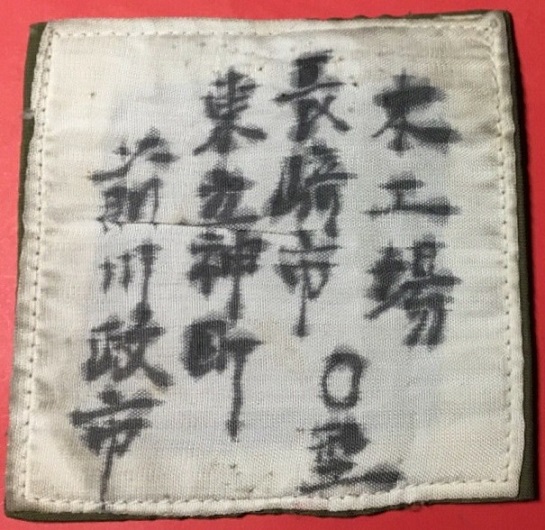 木工場
長崎市 O型
東立神町
前川政市